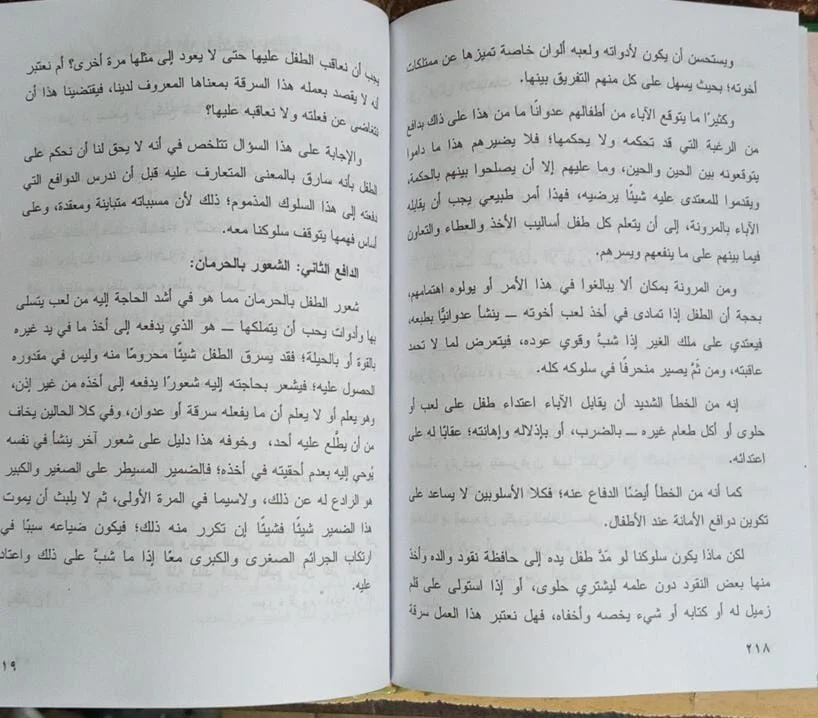 ويستحسن أن يكون لأدواته ولعبه ألوان خاصة تميزها عن ممتلكات
أخوته؛ بحيث يسهل على كل منهم التفريق بينها.
وكثيرًا ما يتوقع الآباء من أطفالهم عدوانًا ما من هذا على ذاك بدافع
من الرغبة التي قد تحكمه ولا يحكمها؛ فلا يضيرهم هذا ما داموا
يتوقعونه بين الحين والحين، وما عليهم إلا أن يصلحوا بينهم بالحكمة،
ويقدموا للمعتدى عليه شيئًا يرضيه، فهذا أمر طبيعي يجب أن يقابله
الآباء بالمرونة، إلى أن يتعلم كل طفل أساليب الأخذ والعطاء والتعاون
فيما بينهم على ما ينفعهم ويسرهم.
ومن المرونة بمكان ألا يبالغوا في هذا الأمر أو يولوه اهتمامهم،
بحجة أن الطفل إذا تمادى في أخذ لعب أخوته ــ ينشأ عدوانيًّا بطبعه،
فيعتدي على ملك الغير إذا شبَّ وقوي عوده، فيتعرض لما لا تحمد
عاقبته، ومن ثَمَّ يصير منحرفًا في سلوكه كله.
إنه من الخطأ الشديد أن يقابل الآباء اعتداء طفل على لعب أو
حلوى أو أكل طعام غيره ــ بالضرب، أو بإذلاله وإهانته؛ عقابًا له على
اعتدائه.
كما أنه من الخطأ أيضًا الدفاع عنه؛ فكلا الأسلوبين لا يساعد على
تكوين دوافع الأمانة عند الأطفال.
لكن ماذا يكون سلوكنا لو مَدَّ طفل يده إلى حافظة نقود والده وأخذ
منها بعض النقود دون علمه ليشتري حلوى، أو إذا استولى على قلم
زميل له أو كتابه أو شيء يخصه وأخفاه، فهل نعتبر هذا العمل سرقة
٢١٨
يجب أن نعاقب الطفل عليها حتى لا يعود إلى مثلها مرة أخرى؟ أم نعتبر
أنه لا يقصد بعمله هذا السرقة بمعناها المعروف لدينا، فيقتضينا هذا أن
نتغاضى عن فعلته ولا نعاقبه عليها؟
والإجابة على هذا السؤال تتلخص في أنه لا يحق لنا أن نحكم على
الطفل بأنه سارق بالمعنى المتعارف عليه قبل أن ندرس الدوافع التي
دفعته إلى هذا السلوك المذموم؛ ذلك لأن مسبباته متباينة ومعقدة، وعلى
أساس فهمها يتوقف سلوكنا معه.
الدافع الثاني: الشعور بالحرمان:
شعور الطفل بالحرمان مما هو في أشد الحاجة إليه من لعب يتسلى
بها وأدوات يحب أن يتملكها ــ هو الذي يدفعه إلى أخذ ما في يد غيره
بالقوة أو بالحيلة؛ فقد يسرق الطفل شيئًا محرومًا منه وليس في مقدوره
الحصول عليه؛ فيشعر بحاجته إليه شعورًا يدفعه إلى أخذه من غير إذن،
وهو يعلم أو لا يعلم أن ما يفعله سرقة أو عدوان، وفي كلا الحالين يخاف
من أن يطَّلع عليه أحد، وخوفه هذا دليل على شعور آخر ينشأ في نفسه
يُوحي إليه بعدم أحقيته في أخذه؛ فالضمير المسيطر على الصغير والكبير
هو الرادع له عن ذلك، ولاسيما في المرة الأولى، ثم لا يلبث أن يموت
هذا الضمير شيئًا فشيئًا إن تكرر منه ذلك؛ فيكون ضياعه سببًا في
ارتكاب الجرائم الصغرى والكبرى معًا إذا ما شبَّ على ذلك واعتاد
عليه.
١٩